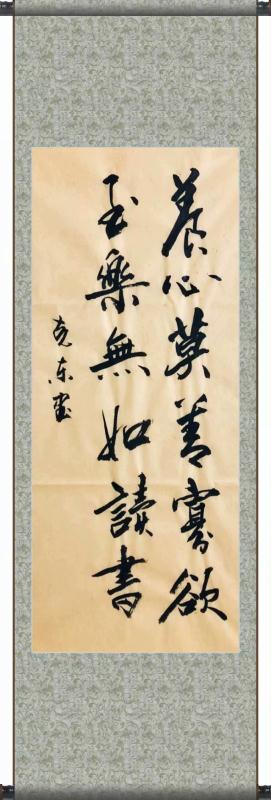 養心莫善寡欲
至樂無如讀書
克东书